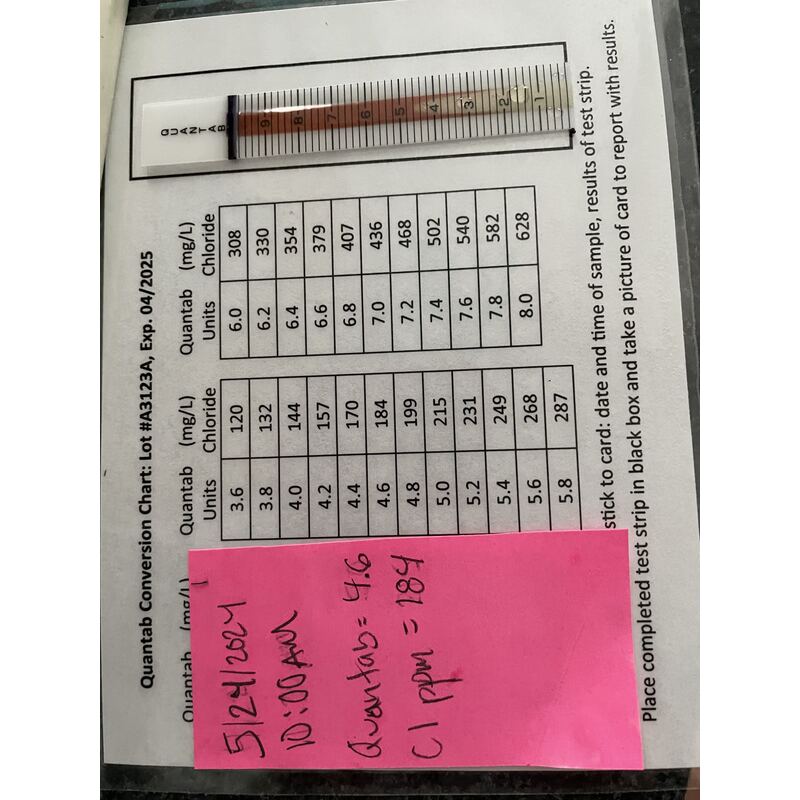 Quantab Conversion Chart: Lot #A3123A, Exp. 04/2025
Quantab (mg/L)
Quantab (mg/L)
Units Chloride
3.6 120
3.8 132
4.0 144
4.2 157
4.4 170
4.6 184
4.8 199
5.0 215
5.2 231
5.4 249
5.6 268
5.8 287
Quantab (mg/L)
Units Chloride
6.0 308
6.2 330
6.4 354
6.6 379
6.8 407
7.0 436
7.2 468
7.4 502
7.6 540
7.8 582
8.0 628
QUANTAB
9
8
7
6
5
4
3
2
1
5/24/2024
10:00 AM
Quantab = 4.6
Cl ppm = 184
stick to card: date and time of sample, results of test strip.
Place completed test strip in black box and take a picture of card to report with results.